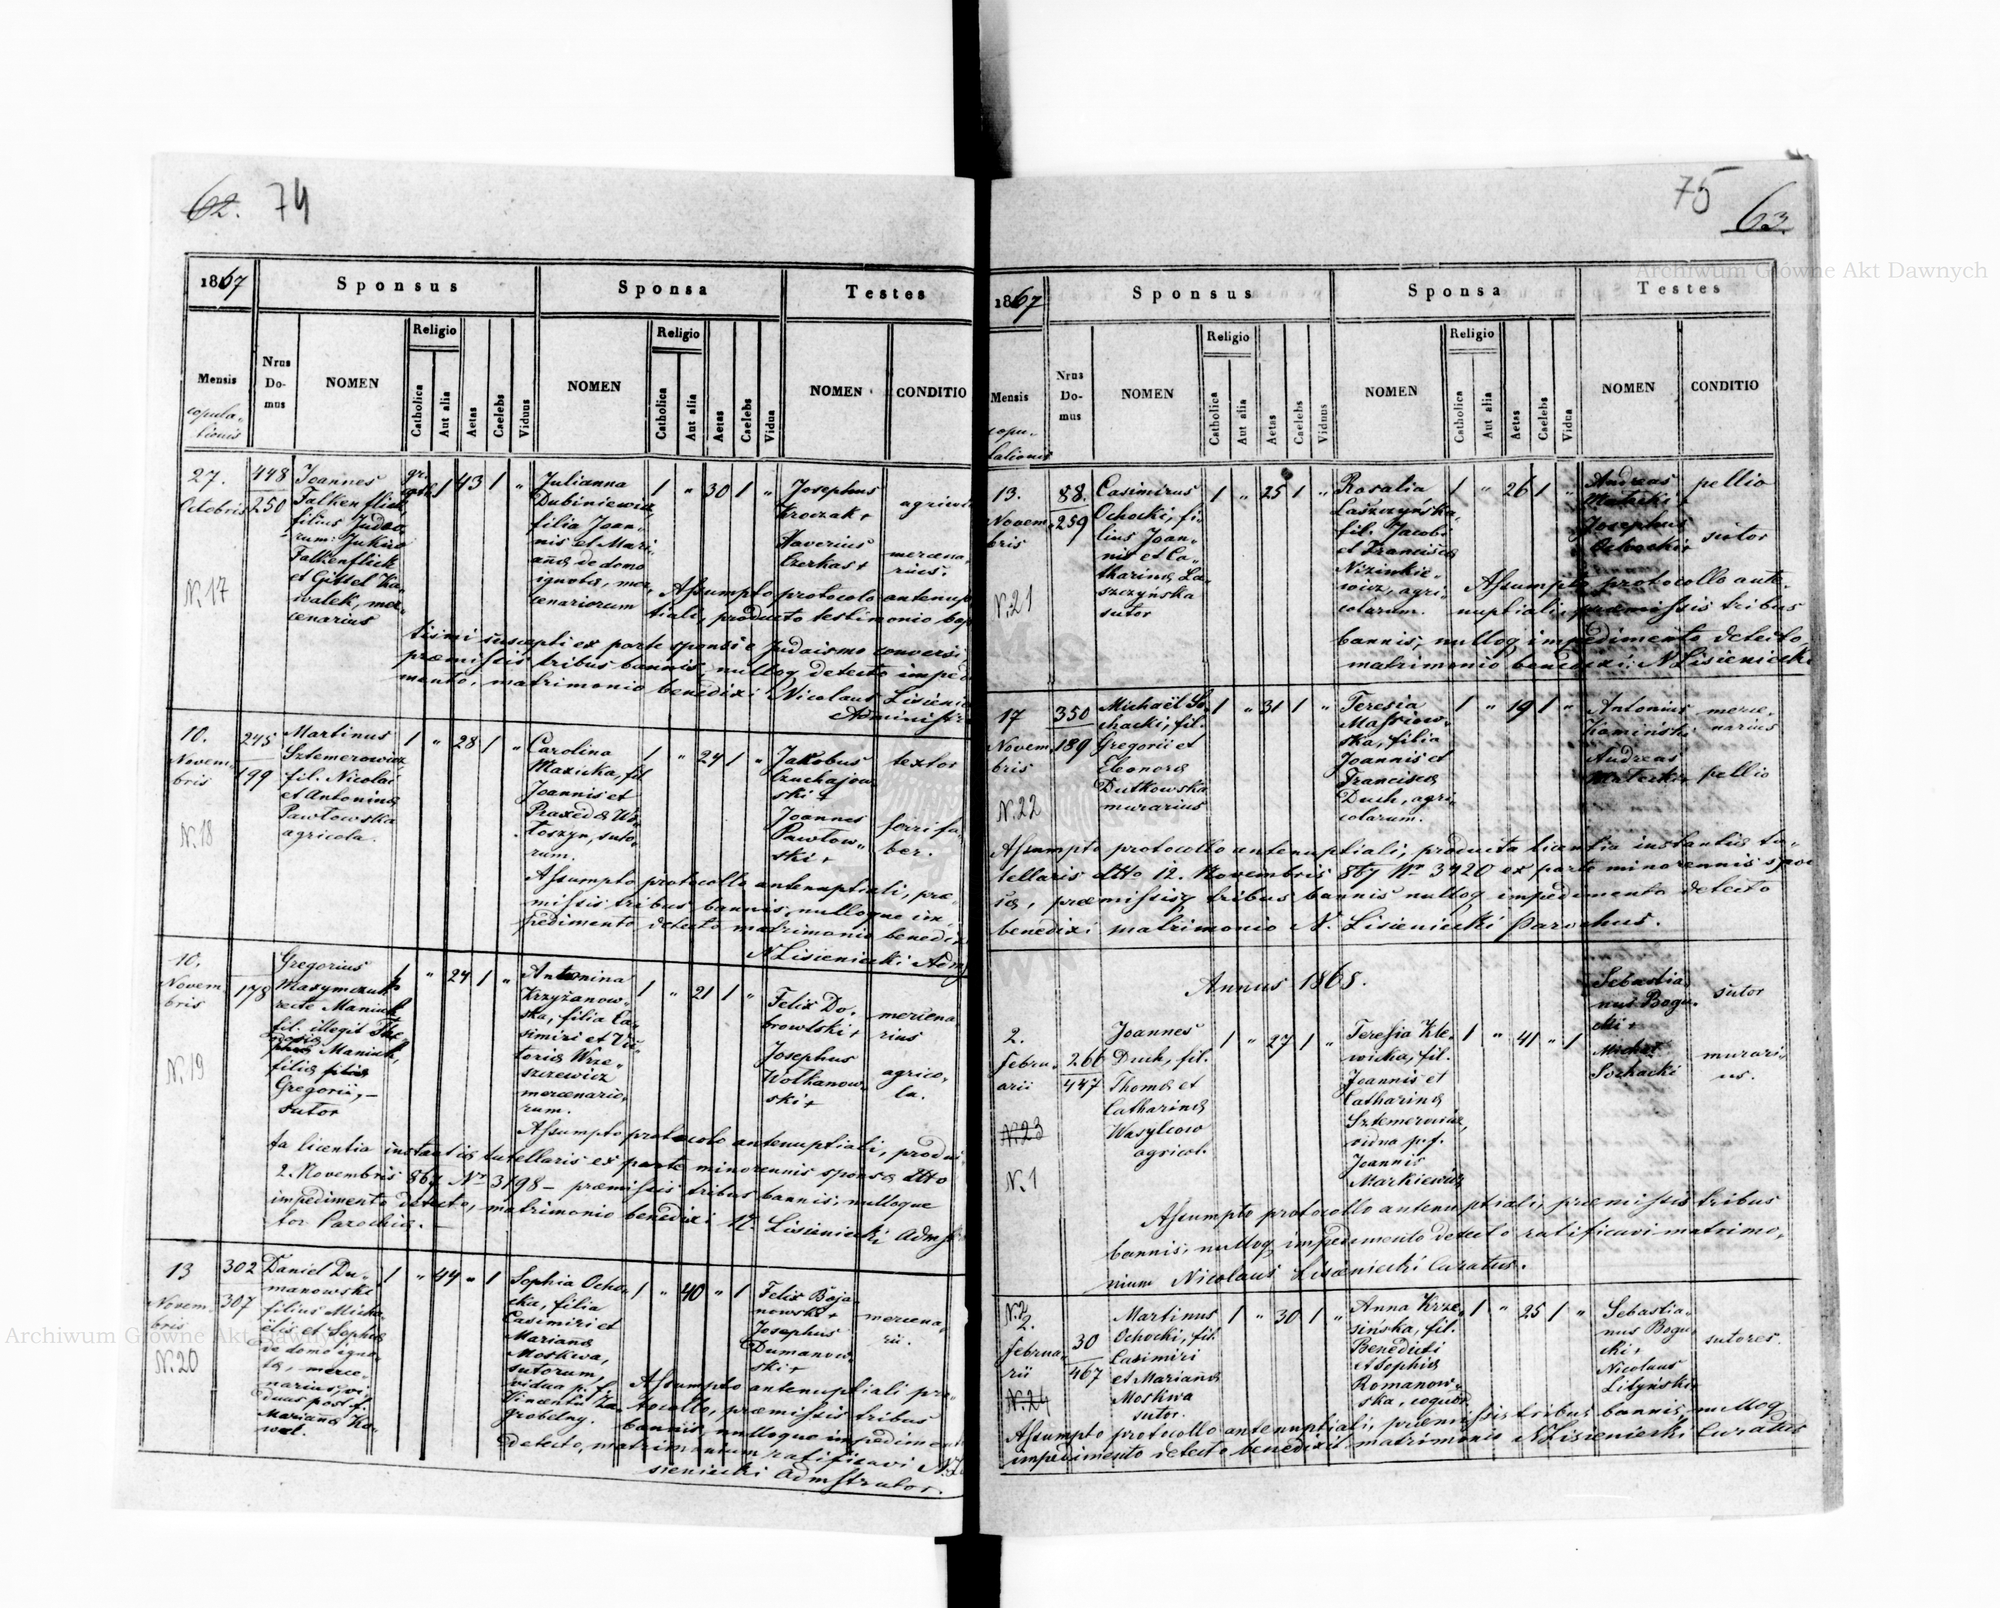 62. 74
1867
Sponsus
Sponsa
Testes
Mensis
copula-
tionis
Nrus
Do-
mus
NOMEN
Religio
Catholica
Aut alia
Aetas
Caelebs
Viduus
NOMEN
Religio
Catholica
Aut alia
Aetas
Caelebs
Vidua
NOMEN
CONDITIO
27.
Octobris
N.17
448
250
Joannes
Falkenflick
filius Judaeo-
rum: Jukiro
Falkenflick
et Gittel Ka-
walek, mer-
cenarius
gr.
cath. 1 43 1 "
Julianna
Dubiniewicz,
filia Joan-
nis et Mari-
annae de domo
ignota, mer-
cenariorum
1 " 30 1 "
Josephus
Kroczak +
Xaverius
Czerkas +
agricola
mercena-
rius.
Assumpto protocolo antenup
tiali, producto testimonio bap
tismi suscepti ex parte sponsi e Judaismo conversi
praemissis tribus bannis, nulloq detecto impedi
mento, matrimonio benedixi Nicolaus Lisieniecki
Administr
10.
Novem-
bris
N.18
245
199
Martinus
Sztemerowicz
fil. Nicolai
et Antoninae
Pawłowska
agricola.
1 " 28 1 "
Carolina
Mazicka, fil
Joannis et
Praxedae Wo-
łoszyn, suto-
rum.
1 " 24 1 "
Jakobus
Czuchajow-
ski +
Joannes
Pawłow-
ski +
textor
ferrifa-
ber.
Assumpto protocollo antenuptiali, prae-
missis tribus bannis, nulloque im-
pedimento detecto matrimonio benedixi
N Lisieniecki Adm
10.
Novem
bris
N.19
178
Gregorius
Maxymczuk
recte Maniuk
fil. illegit The
Maniuk,
filiae
Gregorii, –
sutor
1 " 24 1 "
Antonina
Krzyżanow-
ska, filia Ca-
simiri et Vic-
toriae Wrze-
szczewicz
mercenario-
rum.
1 " 21 1 "
Felix Do-
browlski +
Josephus
Wołkanow-
ski +
mercena
rius
agrico-
la.
Assumpto protocolo antenuptiali, produc
ta licentia instantiae tutellaris ex parte minorennis sponsae dtto
2. Novembris 867 Nr 3198 – praemissis tribus bannis, nulloque
impedimento detecto, matrimonio benedixi N. Lisieniecki Admstr
tor Parochiae. –
13
Novem-
bris
N.20
302
307
Daniel Du-
manowski
filius Micha-
elis et Sophiae
de domo igno-
ta, merce-
narius, vi-
duus post f.
Mariana Ko-
wal.
1 " 44 " 1
Sophia Ocho-
cka, filia
Casimiri et
Marianae
Moskwa,
sutorum,
vidua p. f.
Vincentii Za-
grobelny.
1 " 40 " 1
Felix Boja-
nowski +
Josephus
Dumanow-
ski +
mercena-
rii.
Assumpto antenuptiali pro-
tocollo, praemissis tribus
bannis, nulloque impedimento
detecto, matrimonium ratificavi N. Li
sieniecki Admstrator.
75 63.
1867
Sponsus
Sponsa
Testes
Mensis
copu-
lationis
Nrus
Do-
mus
NOMEN
Religio
Catholica
Aut alia
Aetas
Caelebs
Viduus
NOMEN
Religio
Catholica
Aut alia
Aetas
Caelebs
Vidua
NOMEN
CONDITIO
13.
Novem-
bris
N.21
88.
259
Casimirus
Ochocki, fi-
lius Joan-
nis et Ca-
tharinae La-
szczyńska
sutor
1 " 25 1 "
Rosalia
Laszczyńska,
fil. Jacobi
et Franciscae
Nizinkie-
wicz, agri-
colarum.
1 " 26 1 "
Andreas
Matecki +
Josephus
Ochocki +
pellio
sutor
Assumpto protocollo ante-
nuptiali, praemissis tribus
bannis, nulloq impedimento detecto,
matrimonio benedixi: N Lisieniecki
17
Novem
bris
N.22
350
189
Michaël So-
chacki, fil.
Gregorii et
Eleonorae
Dutkowska
murarius
1 " 31 1 "
Teresia
Massiow-
ska, filia
Joannis et
Franciscae
Duch, agri-
colarum.
1 " 19 1 "
Antonius
Kamiński
Andreas
Matecki +
merce-
narius
pellio
Assumpto protocollo antenuptiali, producta licentia instantiae tu-
tellaris dtto 12. Novembris 867 Nr 3420 ex parte minorennis spon
sae, praemissisq tribus bannis nulloq impedimento detecto
benedixi matrimonio N. Lisieniecki Parochus.
Annus 1868.
2.
Febru-
arii
N.23
N.1
266
447
Joannes
Duch, fil.
Thomae et
Catharinae
Wasylcow
agricol.
1 " 27 1 "
Teresia Kle-
wicka, fil.
Joannis et
Catharinae
Sztemerowicz,
vidua p. f.
Joannis
Markiewicz
1 " 41 " 1
Sebastia-
nus Bogu-
cki +
Michael
Sochacki
sutor
murari-
us.
Assumpto protocollo antenuptiali, praemissis tribus
bannis, nulloq impedimento detecto ratificavi matrimo-
nium Nicolaus Lisieniecki Curatus.
N.2
2.
Februa-
rii
N.24
30
467
Martinus
Ochocki, fil.
Casimiri
et Marianae
Moskwa
sutor.
1 " 30 1 "
Anna Krze-
sińska, fil.
Benedicti
et Sophiae
Romanow-
ska, coquor.
1 " 25 1 "
Sebastia-
nus Bogu-
cki +
Nicolaus
Lityński +
sutores.
Assumpto protocollo antenuptiali, praemissis tribus bannis, nulloq
impedimento detecto benedixit matrimonio N Lisieniecki Curatus
Archiwum Główne Akt Dawnych
Archiwum Główne Akt Dawnych